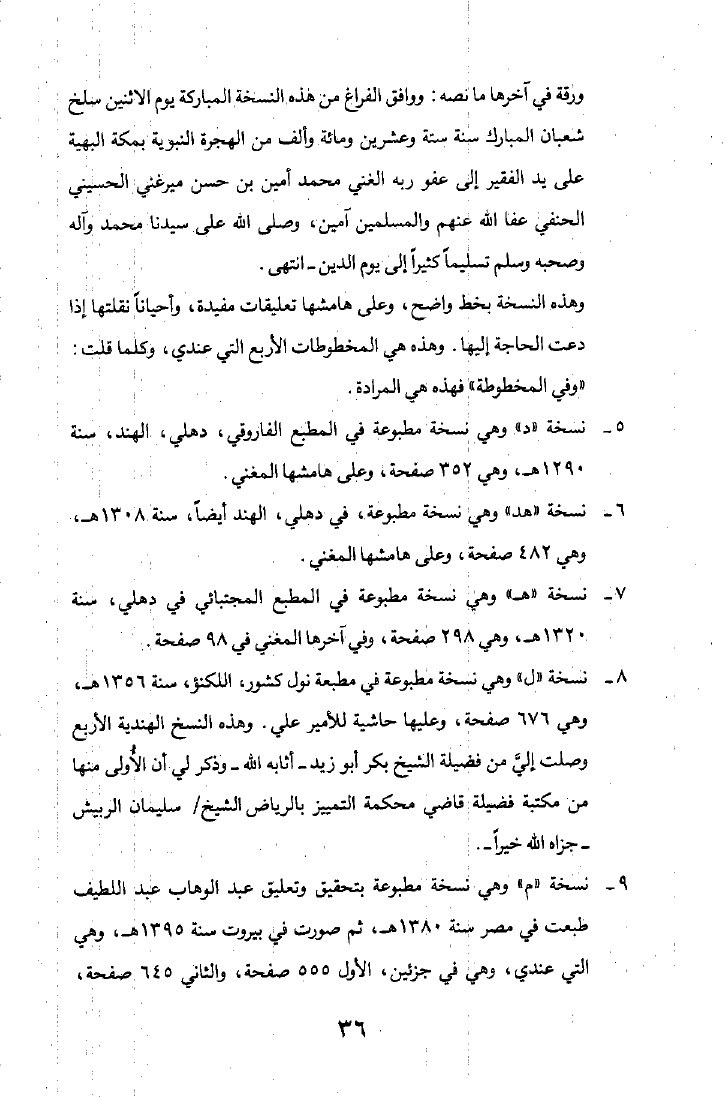 ورقة في آخرها ما نصه: ووافق الفراغ من هذه النسخة المباركة يوم الاثنين سلخ
شعبان المبارك سنة ستة وعشرين ومائة وألف من الهجرة النبوية بمكة البهية
على يد الفقير إلى عفو ربه الغني محمد أمين بن حسن ميرغني الحسيني
الحنفي عفا الله عنهم والمسلمين آمين، وصلى الله على سيدنا محمد وآله
وصحبه وسلم تسليماً كثيراً إلى يوم الدين ـ انتهى.
وهذه النسخة بخط واضح، وعلى هامشها تعليقات مفيدة، وأحياناً نقلتها إذا
دعت الحاجة إليها. وهذه هي المخطوطات الأربع التي عندي، وكلما قلت:
«وفي المخطوطة» فهذه هي المرادة.
٥ـ نسخة «د» وهي نسخة مطبوعة في المطبع الفاروقي، دهلي، الهند، سنة
١٢٩٠هـ، وهي ٣٥٢ صفحة، وعلى هامشها المغني.
٦ـ نسخة «هد» وهي نسخة مطبوعة، في دهلي، الهند أيضاً، سنة ١٣٠٨هـ،
وهي ٤٨٢ صفحة، وعلى هامشها المغني.
٧ـ نسخة «هـ» وهي نسخة مطبوعة في المطبع المجتبائي في دهلي، سنة
١٣٢٠هـ، وهي ٢٩٨ صفحة، وفي آخرها المغني في ٩٨ صفحة.
٨ـ نسخة «ل» وهي نسخة مطبوعة في مطبعة نول كشور، اللكنؤ، سنة ١٣٥٦هـ،
وهي ٦٧٦ صفحة، وعليها حاشية للأمير علي. وهذه النسخ الهندية الأربع
وصلت إليَّ من فضيلة الشيخ بكر أبو زيد ـ أثابه الله ـ وذكر لي أن الأُولى منها
من مكتبة فضيلة قاضي محكمة التمييز بالرياض الشيخ/ سليمان الربيش
ـ جزاه الله خيراً ـ.
٩ـ نسخة «م» وهي نسخة مطبوعة بتحقيق وتعليق عبد الوهاب عبد اللطيف
طبعت في مصر سنة ١٣٨٠هـ، ثم صورت في بيروت سنة ١٣٩٥هـ، وهي
التي عندي، وهي في جزئين، الأول ٥٥٥ صفحة، والثاني ٦٤٥ صفحة،
٣٦